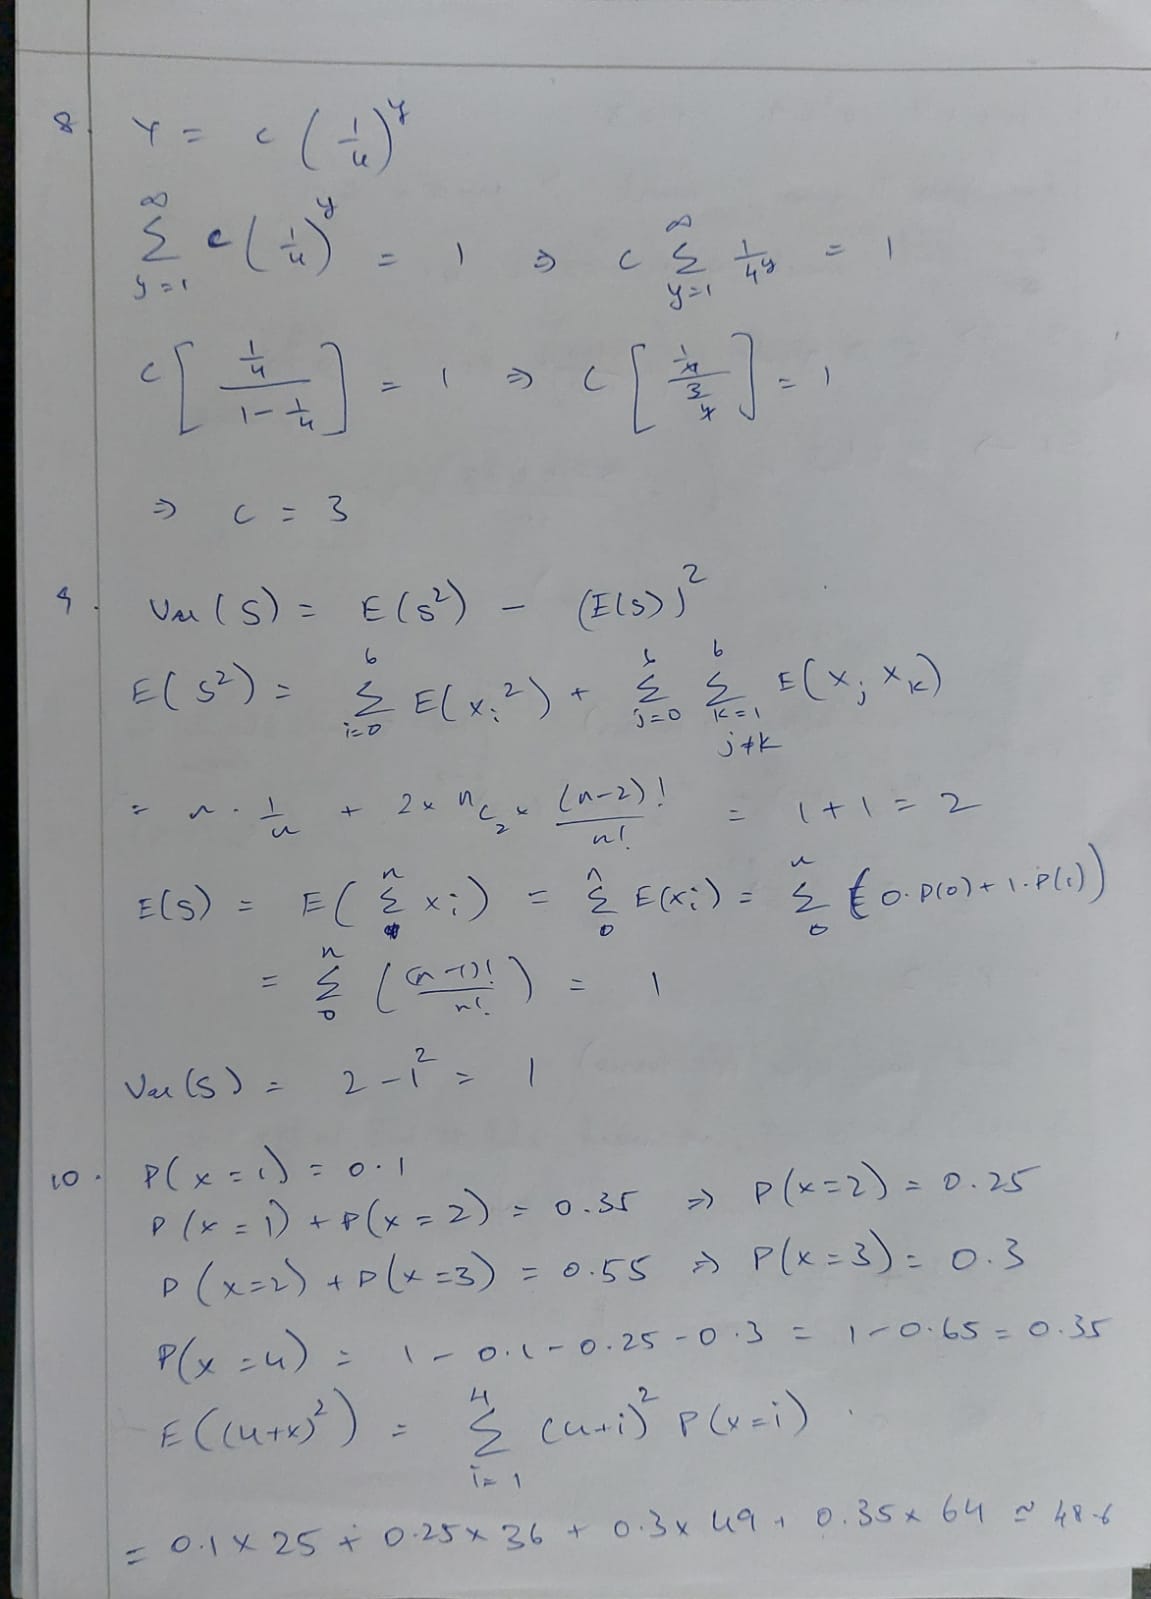 8. Y = c (1/4)^y
∞ Σ y=1 c(1/4)^y = 1 ⇒ c ∞ Σ y=1 1/4^y = 1
c [ (1/4) / (1 - 1/4) ] = 1 ⇒ c [ (1/4) / (3/4) ] = 1
⇒ c = 3
9. Var(S) = E(s²) - (E(s))²
E(s²) = 6 Σ i=0 E(xᵢ²) + 6 Σ j=0 6 Σ k=1 j≠k E(xⱼ xₖ)
= n · 1/n + 2 × ⁿC₂ × (n-2)!/n! = 1 + 1 = 2
E(S) = E( n Σ 0 xᵢ) = n Σ 0 E(xᵢ) = n Σ 0 (0·P(0) + 1·P(1))
= n Σ 0 ( (n-1)!/n! ) = 1
Var(S) = 2 - 1² = 1
10. P(x = 1) = 0.1
P(x = 1) + P(x = 2) = 0.35 ⇒ P(x=2) = 0.25
P(x=2) + P(x=3) = 0.55 ⇒ P(x=3) = 0.3
P(x = 4) = 1 - 0.1 - 0.25 - 0.3 = 1 - 0.65 = 0.35
E((4+x)²) = 4 Σ i=1 (4+i)² P(x=i)
= 0.1 × 25 + 0.25 × 36 + 0.3 × 49 + 0.35 × 64 ≃ 48.6